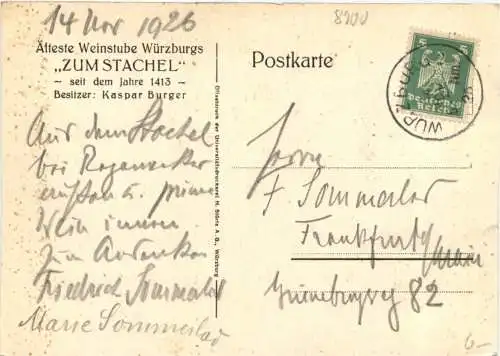 14 Nov 1926
8900
Älteste Weinstube Würzburgs
„ZUM STACHEL"
— seit dem Jahre 1413 —
Besitzer: Kaspar Burger
Postkarte
Deutsches
Reich
WÜRZBURG
Offsetdruck der Universitätsdruckerei H. Stürtz A. G., Würzburg
Aus dem Stachel
bei Regenwetter
außen u. prima
Wein innen
zum Andenken
Friedrich Sommerlad
Marie Sommerlad
Herrn
F Sommerlad
Frankfurt
Main
82
6-